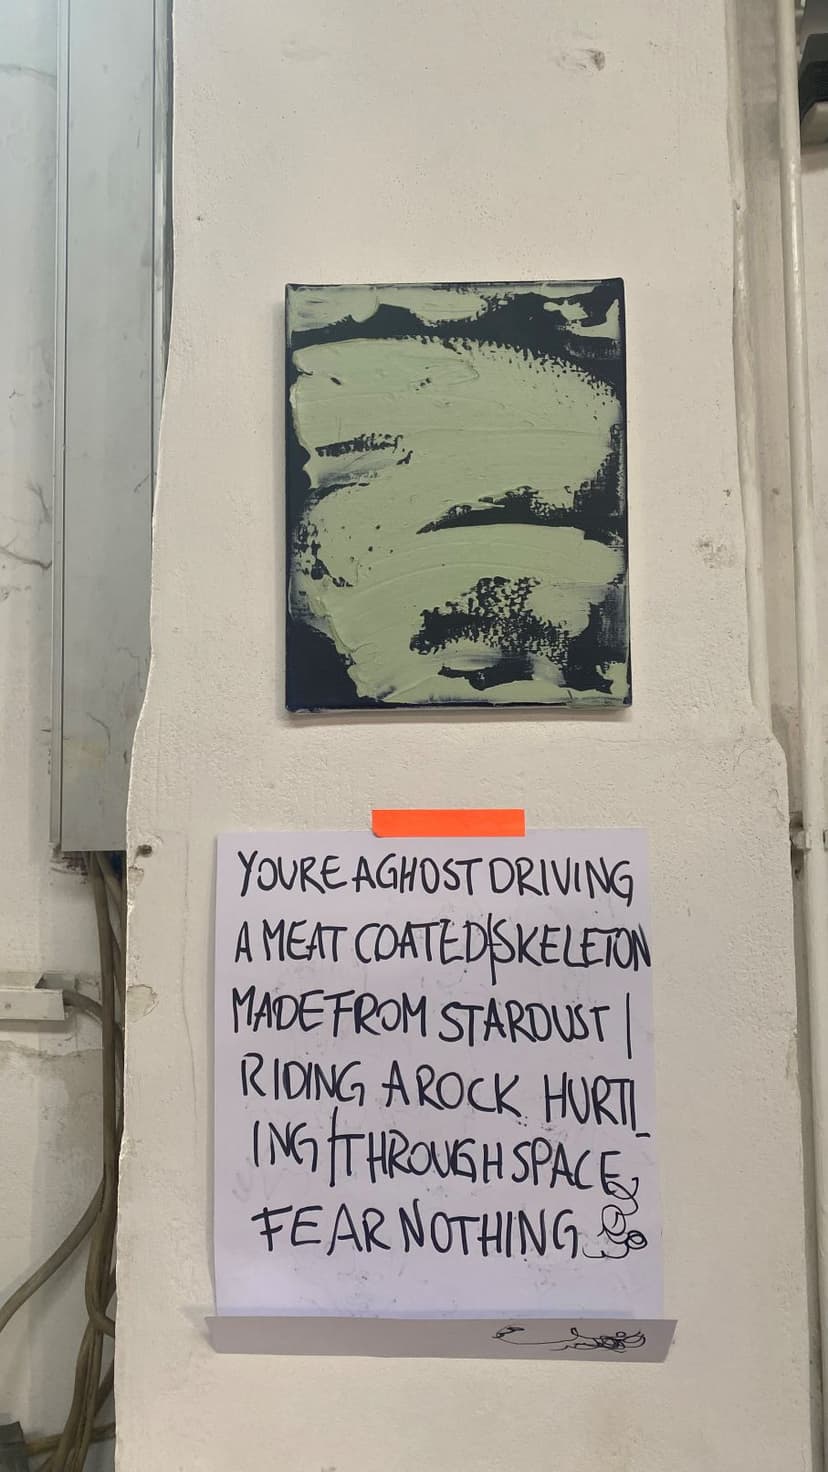 YOURE A GHOST DRIVING
A MEAT COATED|SKELETON
MADE FROM STARDUST |
RIDING A ROCK HURTL_
ING|THROUGH SPACE
FEAR NOTHING